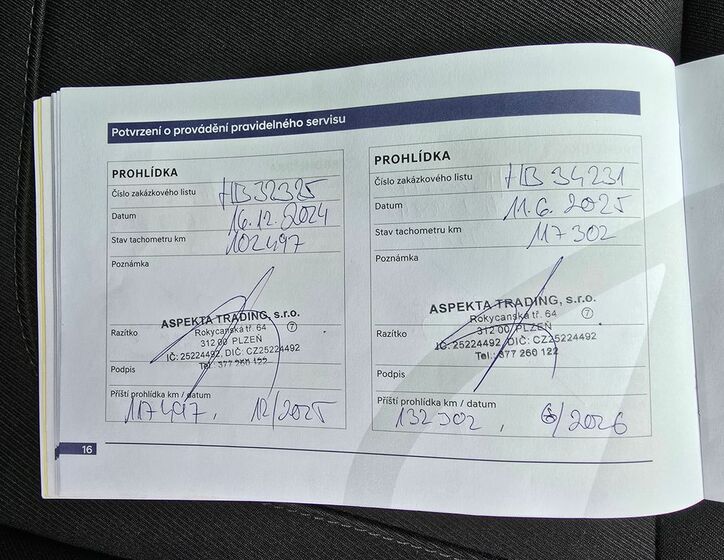 Potvrzení o provádění pravidelného servisu
PROHLÍDKA
Číslo zakázkového listu HB 32325
Datum 16.12.2024
Stav tachometru km 102497
Poznámka
ASPEKTA TRADING, s.r.o.
Rokycanská tř. 64
7
312 00 PLZEŇ
Razítko
IČ: 25224492, DIČ: CZ25224492
Tel.: 377 260 122
Podpis
Příští prohlídka km / datum
117497, 12/2025
PROHLÍDKA
Číslo zakázkového listu HB 34231
Datum 11.6.2025
Stav tachometru km 117302
Poznámka
ASPEKTA TRADING, s.r.o.
Rokycanská tř. 64
7
312 00 PLZEŇ
Razítko
IČ: 25224492, DIČ: CZ25224492
Tel.: 377 260 122
Podpis
Příští prohlídka km / datum
132302, 6/2026
16